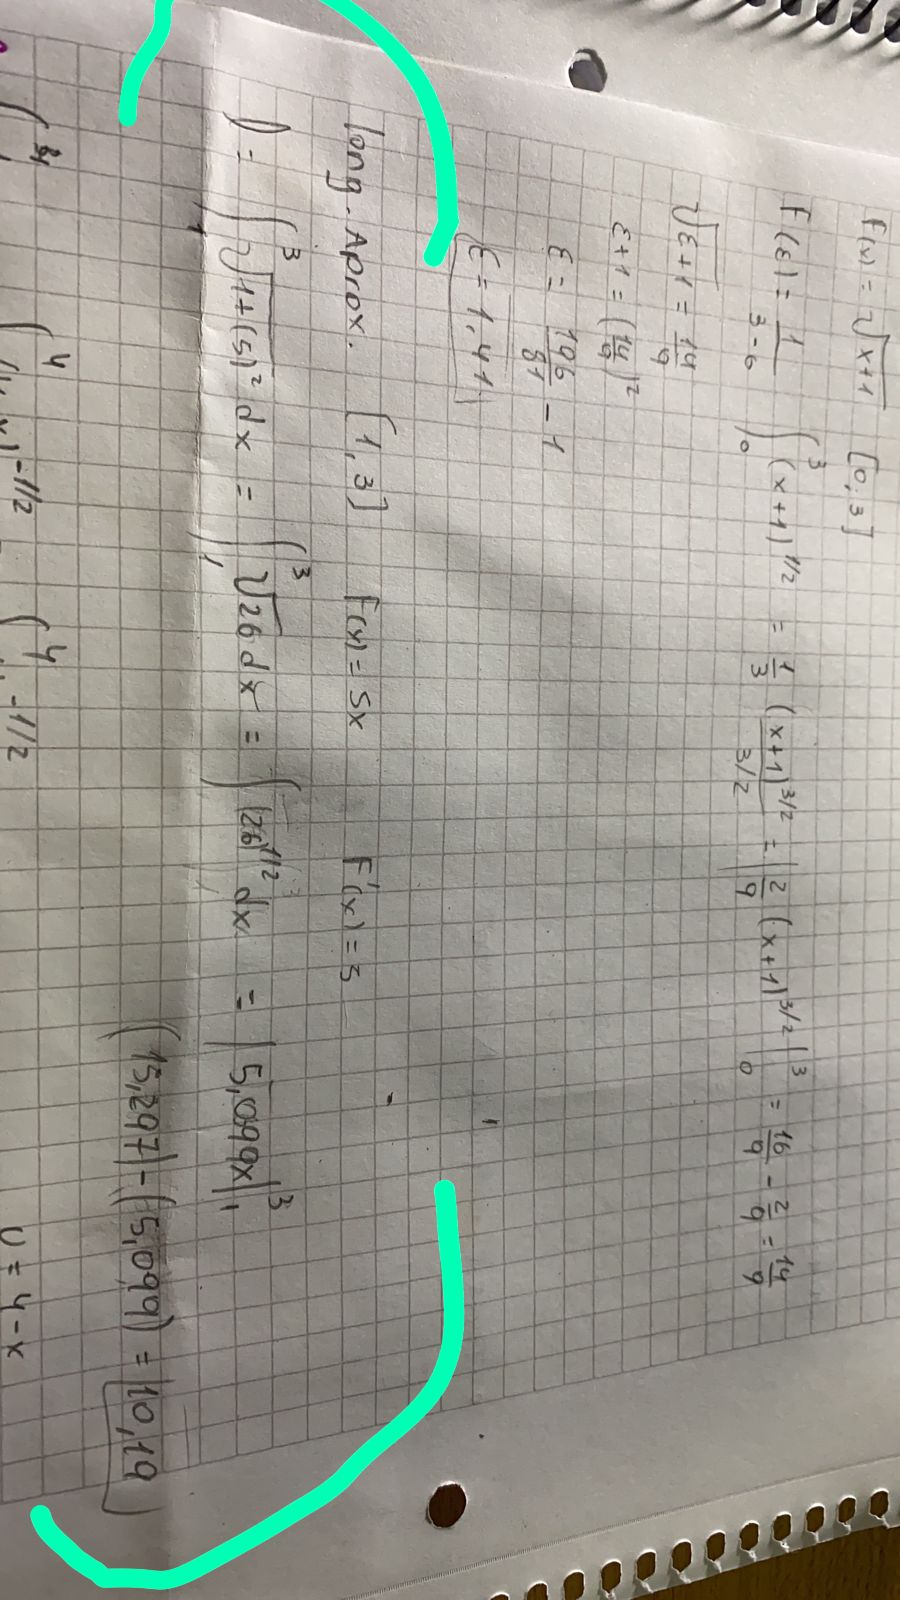 F(x) = √x+1 [0, 3]
F(ε) = 1/3-0 ∫₀³ (x+1)^1/2 = 1/3 (x+1)^3/2 / 3/2 = | 2/9 (x+1)^3/2 |₀³ = 16/9 - 2/9 = 14/9
√ε+1 = 14/9
ε+1 = (14/9)²
ε = 196/81 - 1
ε = 1,41
long. Aprox. [1,3] F(x) = 5x F'(x) = 5
l = ∫₁³ √1+(5)² dx = ∫₁³ √26 dx = ∫ (26)^1/2 dx = | 5,099x |₁³
(15,297) - (5,099) = 10,19
U = 4-x